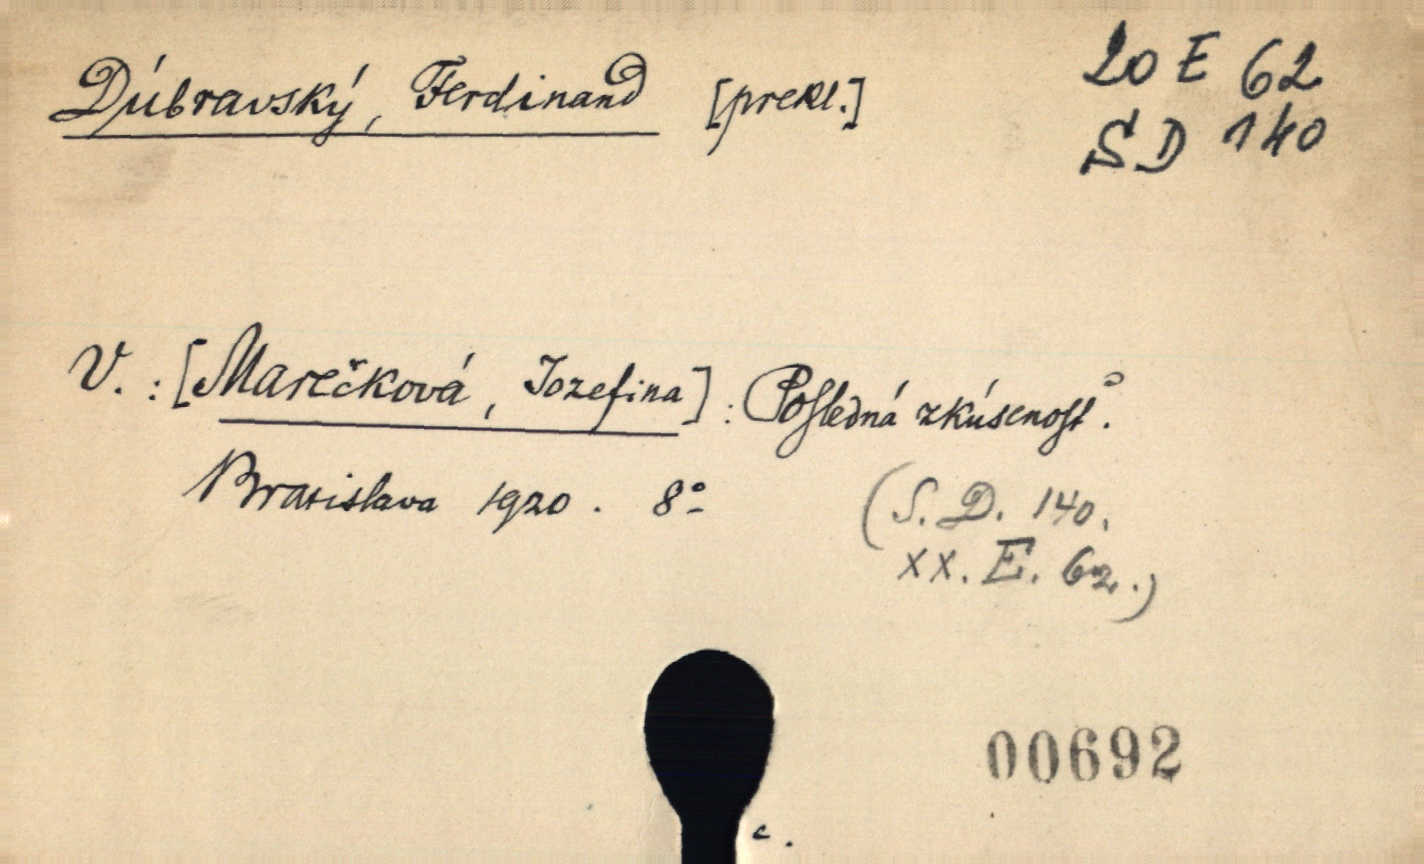 Dúbravský, Ferdinand [prekl.]
20 E 62
SD 140
V. : [Marečková, Jozefina] : Posledná zkúsenosť.
Bratislava 1920. 8°
(S. D. 140.
XX. E. 62.)
00692
c.